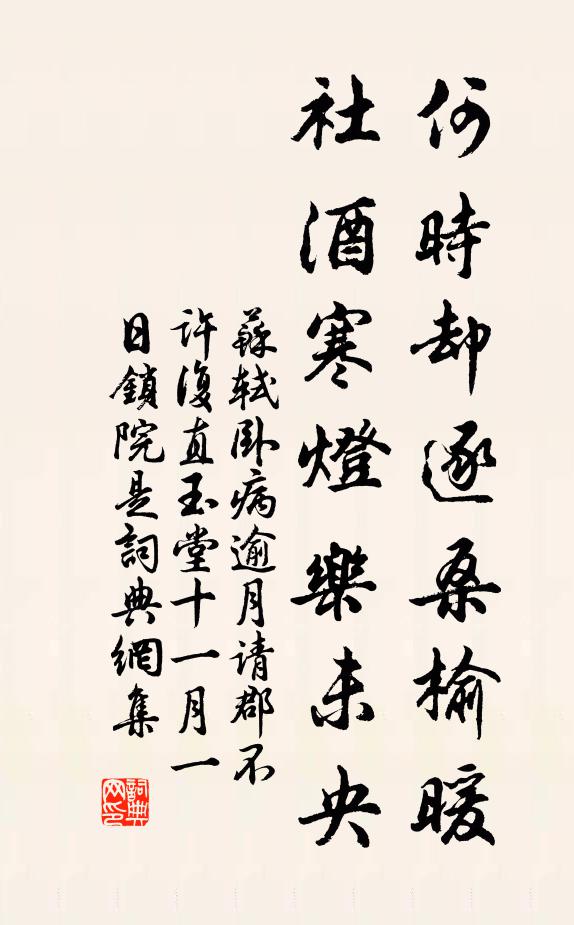 何時却逐桑榆暖
社酒寒燈樂未央
蘇軾臥病逾月请郡不
許復直玉堂十一月一
日鎖院是詞典網集
詞典
网印